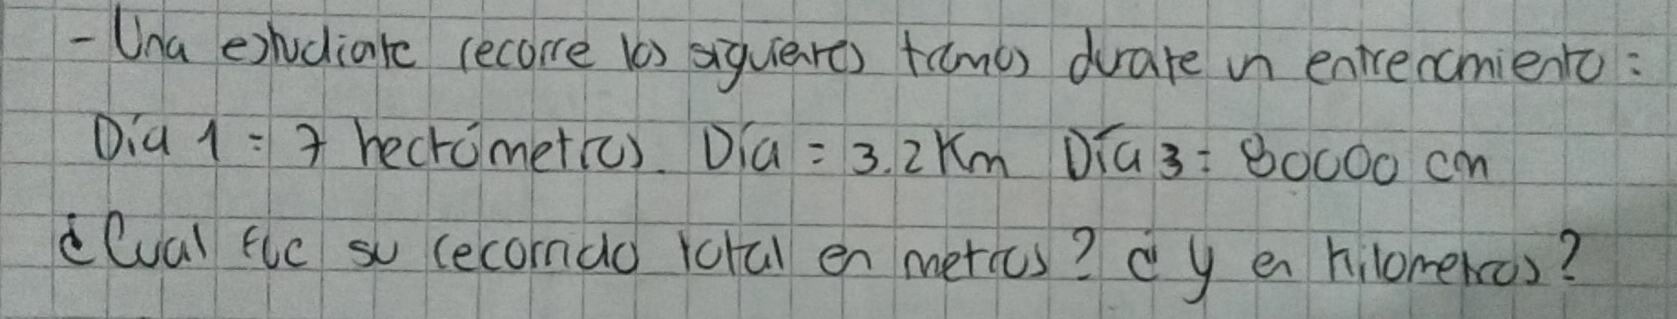 - Una estudiante recorre los siguientes tramos durate un entrenamiento:
Día 1 = 7 hectómetros. Día = 3.2 Km Día 3 = 80000 cm
¿Cual fue su recorrido total en metros? ¿ y en kilometros?